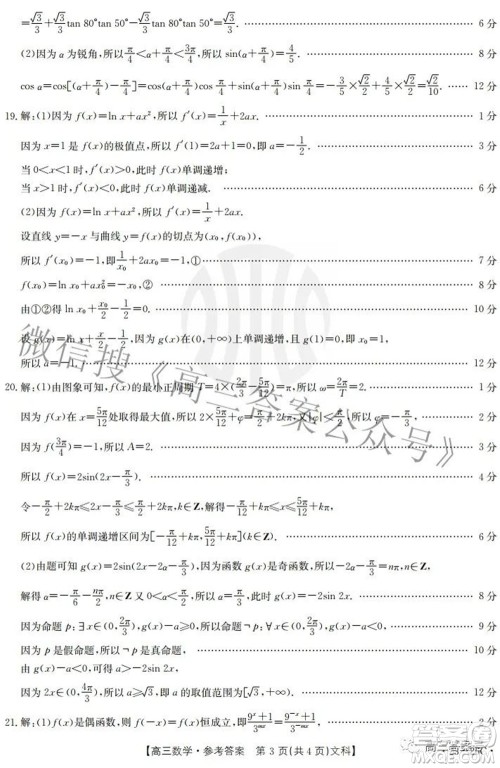 =√3/3+√3/3 tan 80°tan 50°-√3/3 tan 80°tan 50°=√3/3. 6分
(2)因为α为锐角,所以π/4<α+π/4<3π/4,所以sin(α+π/4)=4/5. 8分
cos α=cos[(α+π/4)-π/4]=cos(α+π/4)cos π/4+sin(α+π/4)sin π/4=-3/5×√2/2+4/5×√2/2=√2/10. 12分
19.解:(1)因为f(x)=ln x+ax²,所以f′(x)=1/x+2ax. 1分
因为x=1是f(x)的极值点,所以f′(1)=2a+1=0,即a=-1/2. 3分
当0<x<1时,f′(x)>0,此时f(x)单调递增;
当x>1时,f′(x)<0,此时f(x)单调递减. 6分
(2)因为f(x)=ln x+ax²,所以f′(x)=1/x+2ax.
设直线y=-x与曲线y=f(x)的切点为(x₀,f(x₀)),
所以f′(x₀)=-1,即1/x₀+2ax₀=-1,① 7分
f(x₀)=ln x₀+ax₀²=-x₀,② 8分
由①②得ln x₀+x₀/2-1/2=0. 10分
设g(x)=ln x+x/2-1/2,因为g(x)在(0,+∞)上单调递增,且g(1)=0,即x₀=1,
所以a=-1. 12分
20.解:(1)由图象可知,f(x)的最小正周期T=4×(2π/3-5π/12)=π,所以ω=2π/T=2. 1分
因为f(x)在x=5π/12处取得最大值,所以2×5π/12+φ=π/2+2kπ,又|φ|<π/2,所以φ=-π/3. 2分
因为f(3π/4)=-1,所以A=2. 3分
所以f(x)=2sin(2x-π/3). 4分
令-π/2+2kπ≤2x-π/3≤π/2+2kπ,k∈Z,解得-π/12+kπ≤x≤5π/12+kπ,k∈Z,
所以f(x)的单调递增区间为[-π/12+kπ,5π/12+kπ](k∈Z). 6分
(2)由题可知g(x)=2sin(2x-2α-π/3),因为函数g(x)是奇函数,所以-2α-π/3=nπ,n∈Z,
解得α=-π/6-nπ/2,n∈Z 又0<α<π/2,所以α=π/3,此时g(x)=-2sin 2x. 8分
因为命题p:∃x∈(0,2π/3),g(x)-a≥0,所以命题¬p:∀x∈(0,2π/3),g(x)-a<0. 9分
因为p是假命题,所以¬p是真命题. 10分
由g(x)-a<0,可得a>-2sin 2x.
因为2x∈(0,4π/3),所以a≥√3,即a的取值范围为[√3,+∞). 12分
21.解:(1)f(x)是偶函数,则f(x)=f(-x)恒成立,即
【高三数学·参考答案 第3页(共4页)文科】
微信搜《高三答案公众号》